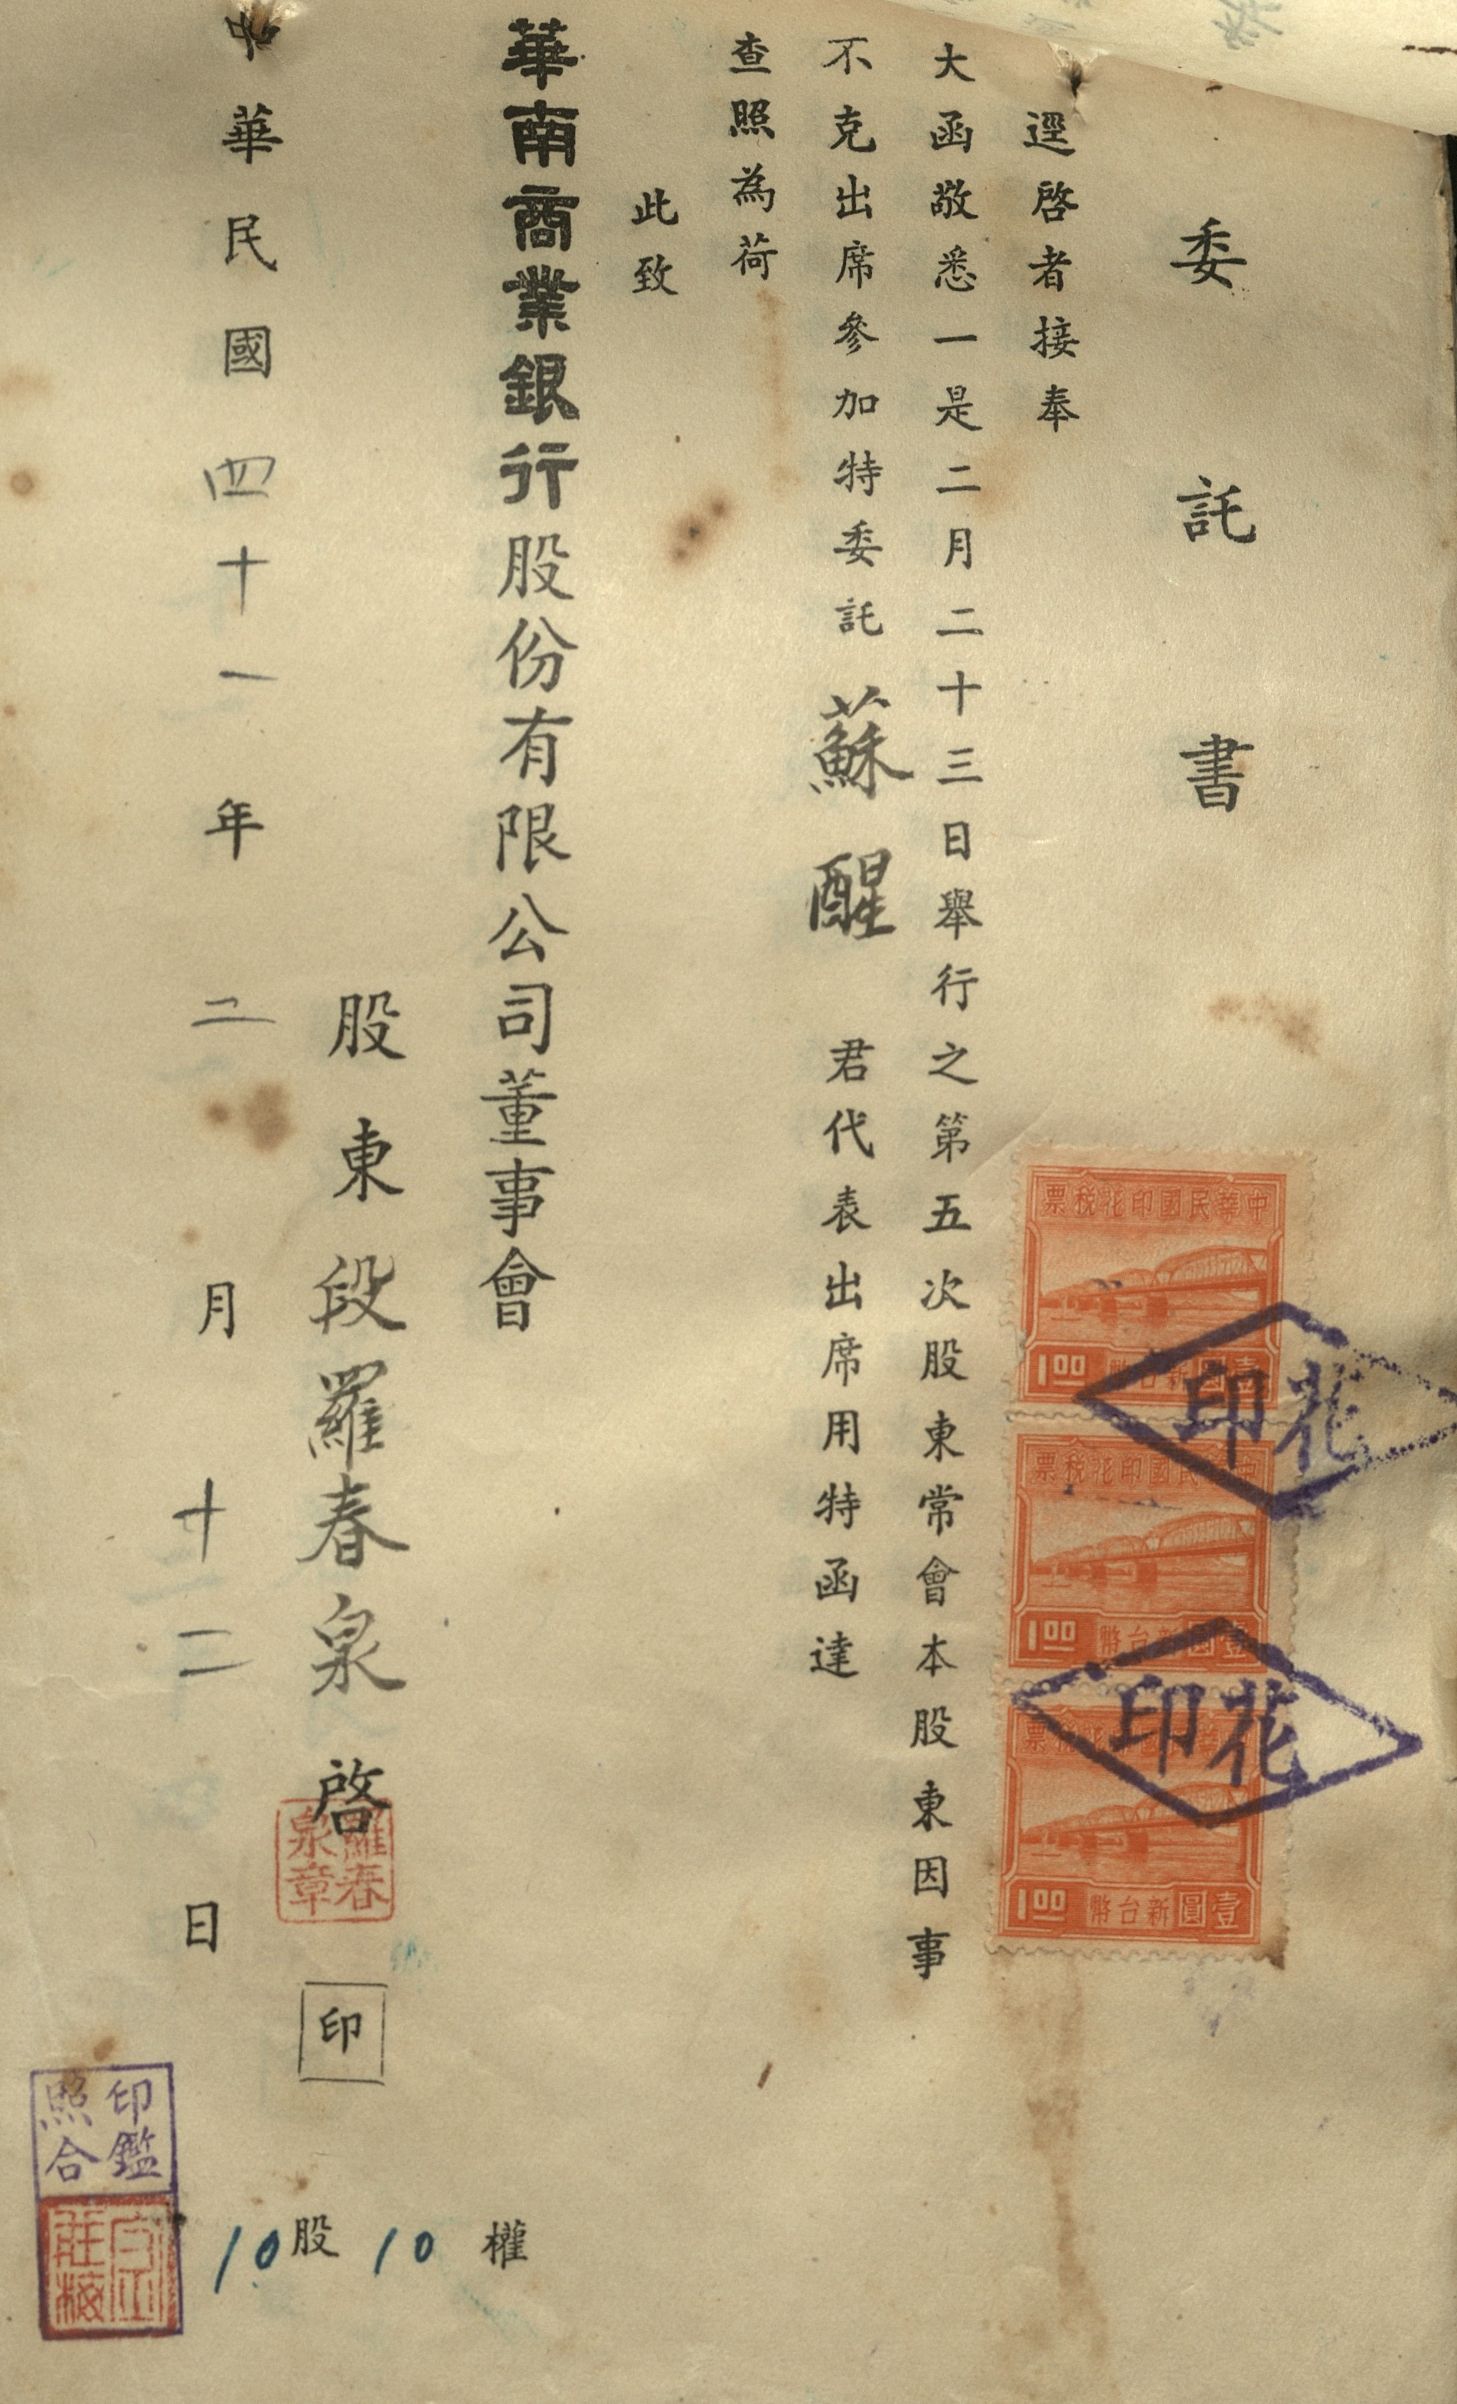 委託書
逕啓者接奉
大函敬悉一是二月二十三日舉行之第五次股東常會本股東因事
不克出席參加特委託蘇醒君代表出席用特函達
查照為荷
此致
華南商業銀行股份有限公司董事會
股東段羅春泉啓
印
中華民國四十一年二月十二日
10股10權
中華民國印花稅票
壹圓新台幣
1.00
中華民國印花稅票
壹圓新台幣
1.00
中華民國印花稅票
壹圓新台幣
1.00
花印
花印
羅春泉章
印鑑照合